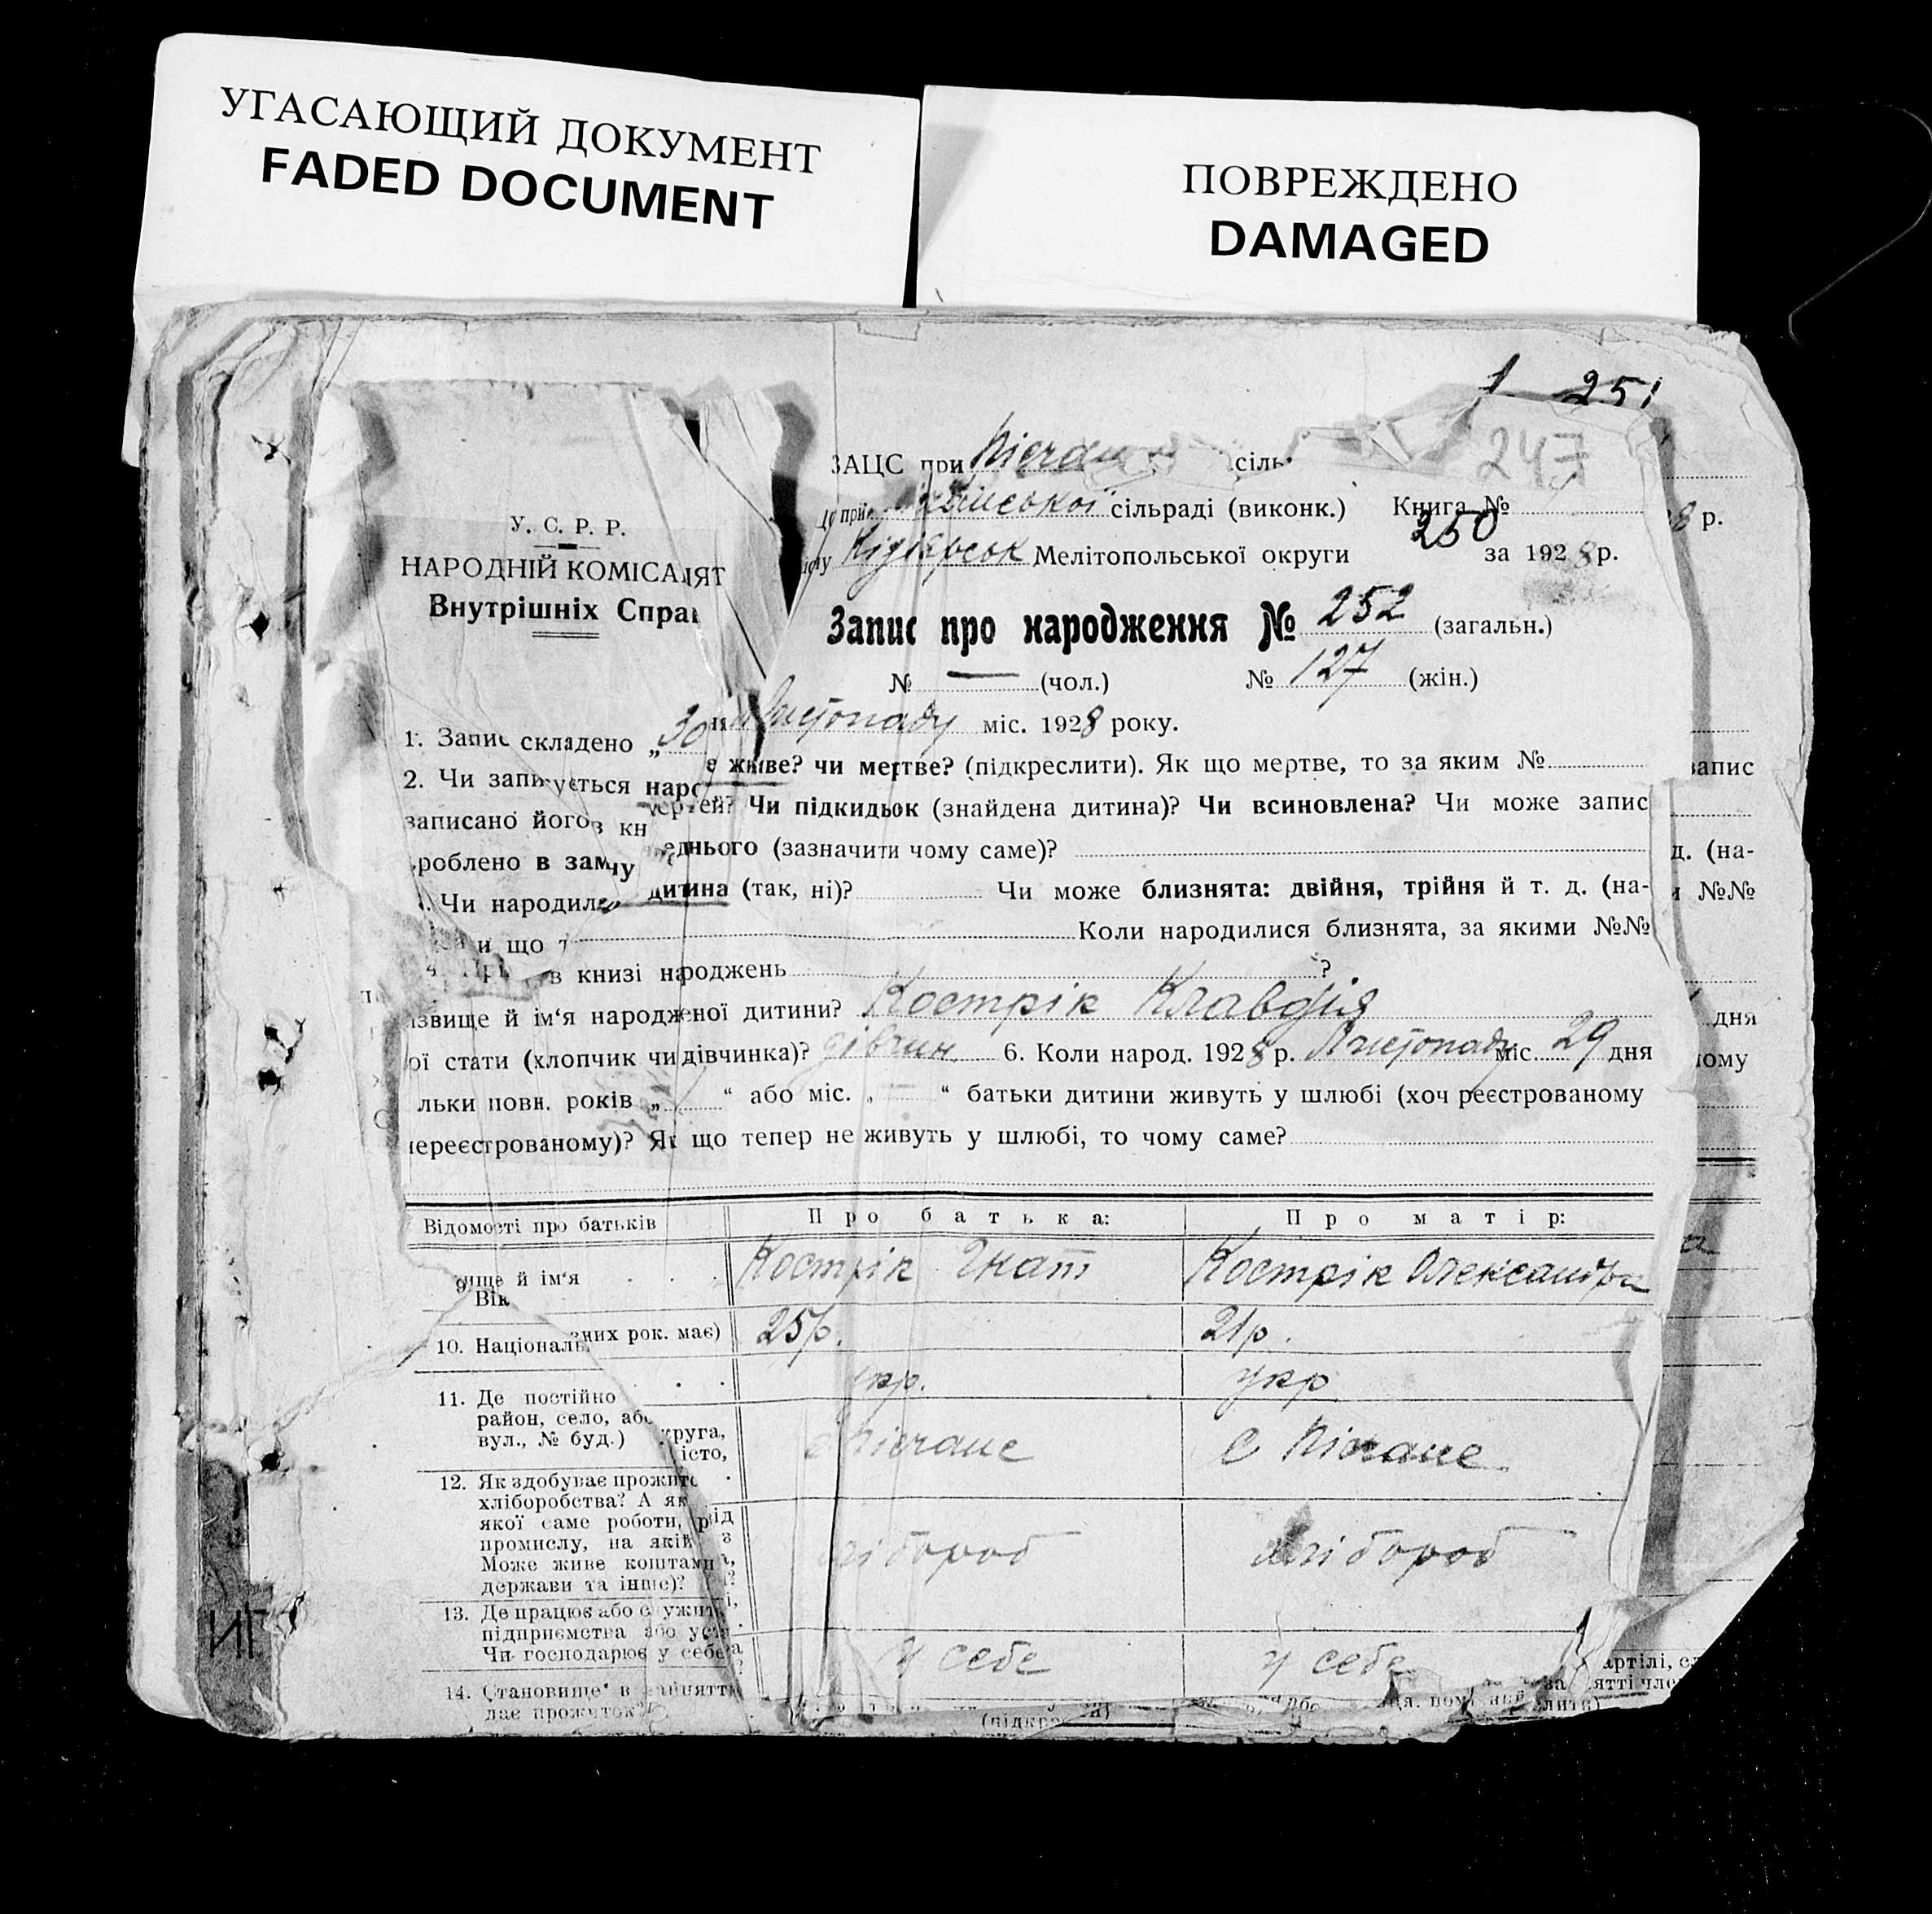 УГАСАЮЩИЙ ДОКУМЕНТ
FADED DOCUMENT
ПОВРЕЖДЕНО
DAMAGED
251
247
ЗАЦС при
сіль
У. С. Р. Р.
НАРОДНІЙ КОМІСА ІЯТ
Внутрішніх Справ
при сільраді (виконк.) Книга №
250
Мелітопольської округи за 1928 р.
8 р.
Запис про народження № 252 (загальн.)
№ — (чол.) № 127 (жін.)
1. Запис складено „30 дня Листопаду міс. 1928 року.
2. Чи записується народ е живе? чи мертве? (підкреслити). Як що мертве, то за яким №
запис
записано його в кн ей? Чи підкидьок (знайдена дитина)? Чи всиновлена? Чи може запис
роблено в заміну еднього (зазначити чому саме)?
д. (на-
Чи народил дитина (так, ні)? Чи може близнята: двійня, трійня й т. д. (на-
№№
и що т Коли народилися близнята, за якими №№
в книзі народжень ?
ізвище й ім‘я народженої дитини? Кострік Клавдія
дня
ої стати (хлопчик чи дівчинка)? дівчин. 6. Коли народ. 1928 р. Листопаду міс. 29 дня
ому
льки повн. років „ “ або міс. „ — “ батьки дитини живуть у шлюбі (хоч реєстрованому
нереєстрованому)? Як що тепер не живуть у шлюбі, то чому саме?
Відомости про батьків Про батька: Про матір:
ище й ім‘я Кострік Гнат Кострік Олександра
9. Вік
зних рок. має) 25 р. 21 р.
10. Національн
укр. укр
11. Де постійно
район, село, або округа,
вул., № буд.) місто,
с Пісчане с Пісчане
12. Як здобуває прожиток
хліборобства? А як від
якої саме роботи, з
промислу, на якій
Може живе коштами
держави та інше)?
хлібороб хлібороб
13. Де працює або служить
підприємства або уста
Чи господарює у себе
у себе у себе
14. Становище в занятті
дає прожиток?
(підкр
артілі,
занятті чле
ИГ